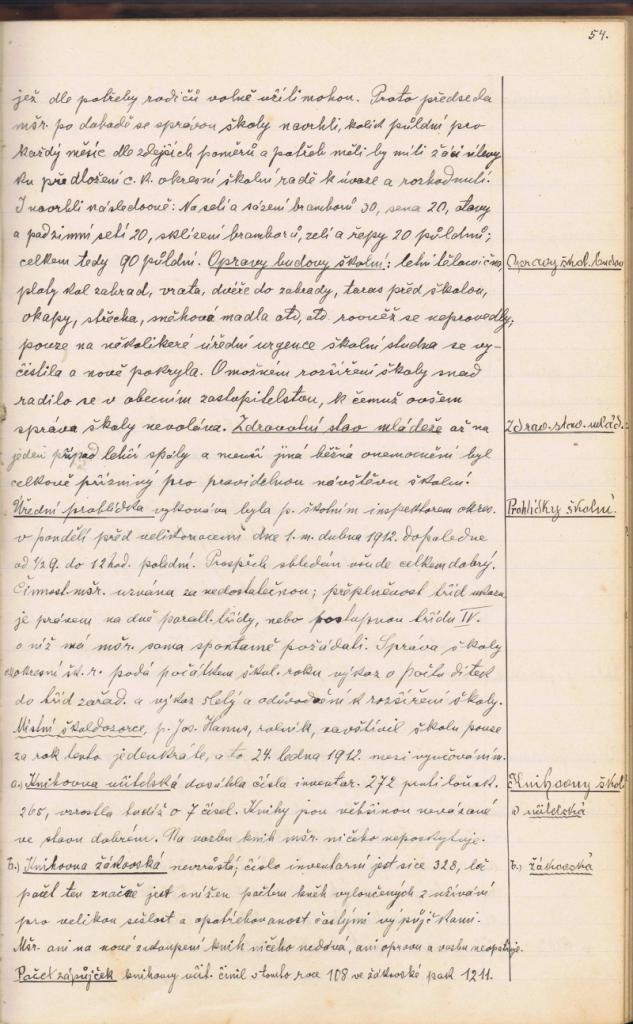 54.
jež dle potřeby rodičů volně užíti mohou. Proto předseda
mšr. po dohodě se správou školy navrhli, kolik půldní pro
každý měsíc dle zdejších poměrů a potřeb měli by míti žáci úlevy
ku předložení c. k. okresní školní radě k úvaze a rozhodnutí.
I navrhli následovně: Na setí a sázení bramborů 30, sena 20, otavy
a podzimní setí 20, sklízení bramborů, zelí a řepy 20 půldnů;
celkem tedy 90 půldní. Opravy budovy školní: letní tělocvičny,
Opravy škol. budov
ploty kol zahrad, vrata, dvéře do zahrady, taras před školou,
okapy, střecha, madla atd, atd. rovněž se neprovedly;
pouze na několikeré úřední urgence školní studna se vy-
čistila a nově pokryla. O možném rozšíření školy snad
radilo se v obecním zastupitelstvu, k čemuž ovšem
správa školy nevolána. Zdravotní stav mládeže až na
Zdrav. stav. mlád.
jeden případ lehčí spály a menší jiná běžná onemocnění byl
celkově příznivý pro pravidelnou návštěvu školní.
Úřední prohlídka vykonána byla p. školním inspektorem okres.
Prohlídky školní.
v pondělí před velikonocemi dne 1. m. dubna 1912. dopoledne
od 1/2 9. do 12 hod. polední. Prospěch shledán všude celkem dobrý.
Činnost mšr. uznána za nedostatečnou; přeplněnost tříd
je právem na dvě parall. třídy, nebo postupnou třídu IV.
o níž má mšr. sama spontanně požádati. Správa školy
okresní šk. r. podá počátkem škol. roku výkaz o počtu dítek
do tříd zařad. a výkaz 5letý a odůvodnění k rozšíření školy.
Místní školdozorce, p. Jos. Hanus, rolník, navštívil školu pouze
za rok tento jedenkráte, a to 24. ledna 1912. mezi vyučováním.
a) Knihovna učitelská dosáhla čísla inventar. 272 proti loňsk.
Knihovny škol.
265, vzrostla tudíž o 7 čísel. Knihy jsou většinou nevázané
a) učitelská
ve stavu dobrém. Na vazbu knih mšr. ničeho neposkytuje.
b.) Knihovna žákovská nevzrostla; číslo inventární jest sice 328, leč
b.) žákovská
počet ten značně jest snížen počtem kněh vyloučených z užívání
pro velikou sešlost a opotřebovanost častými výpůjčkami.
Mšr. ani na nové zakoupení knih ničeho nedává, ani opravu a vazbu neopatřuje.
Počet zápůjček knihovny učit. činil v tomto roce 108 ve žákovské pak 1211.